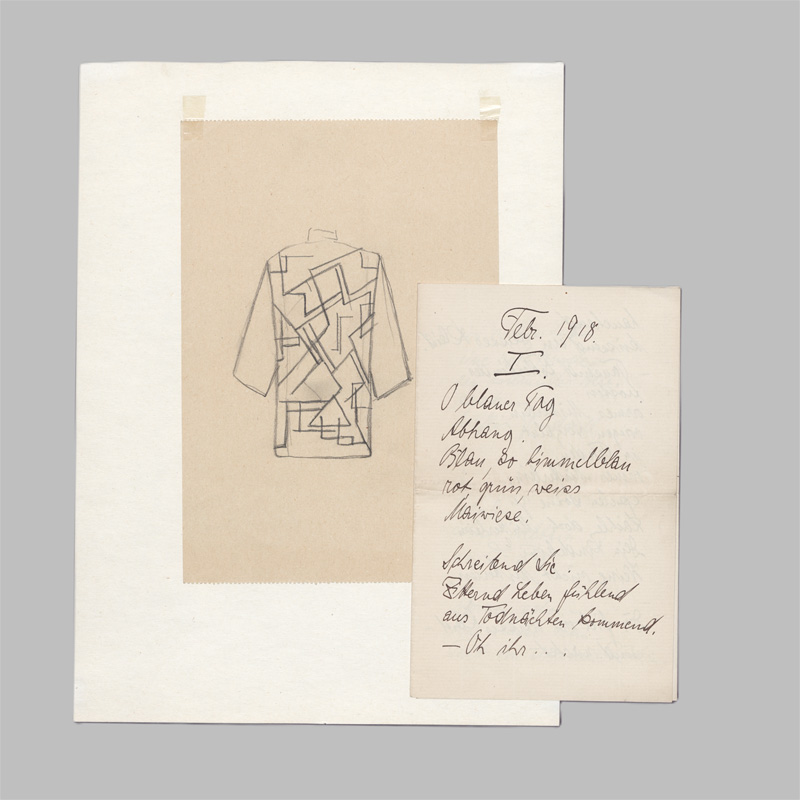 Febr. 1918.
I.
O blauer Tag
Abhang.
Blau, so himmelblau
rot, grün, weiss
Maiwiese.
Schreitend Sie.
Zitternd Leben fühlend
aus Todnächten kommend.
— Oh ihr...